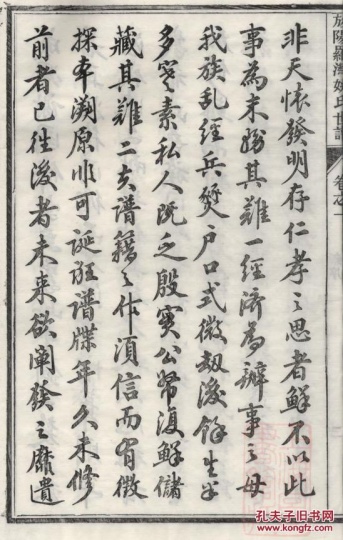 非天怀發明存仁孝之思者鮮不以此
事為末務其難一經济為辦事之母
我族乱經兵燹户口式微刼後餘生半
多寒素私人既乏殷實公帑復鮮儲
藏其難二夫譜籍之作須信而有徵
探本溯原非可誕㽵譜牒年久未修
前者已往後者未来欲阐發之靡遺
氏世譜
卷之一
孔夫子旧书网